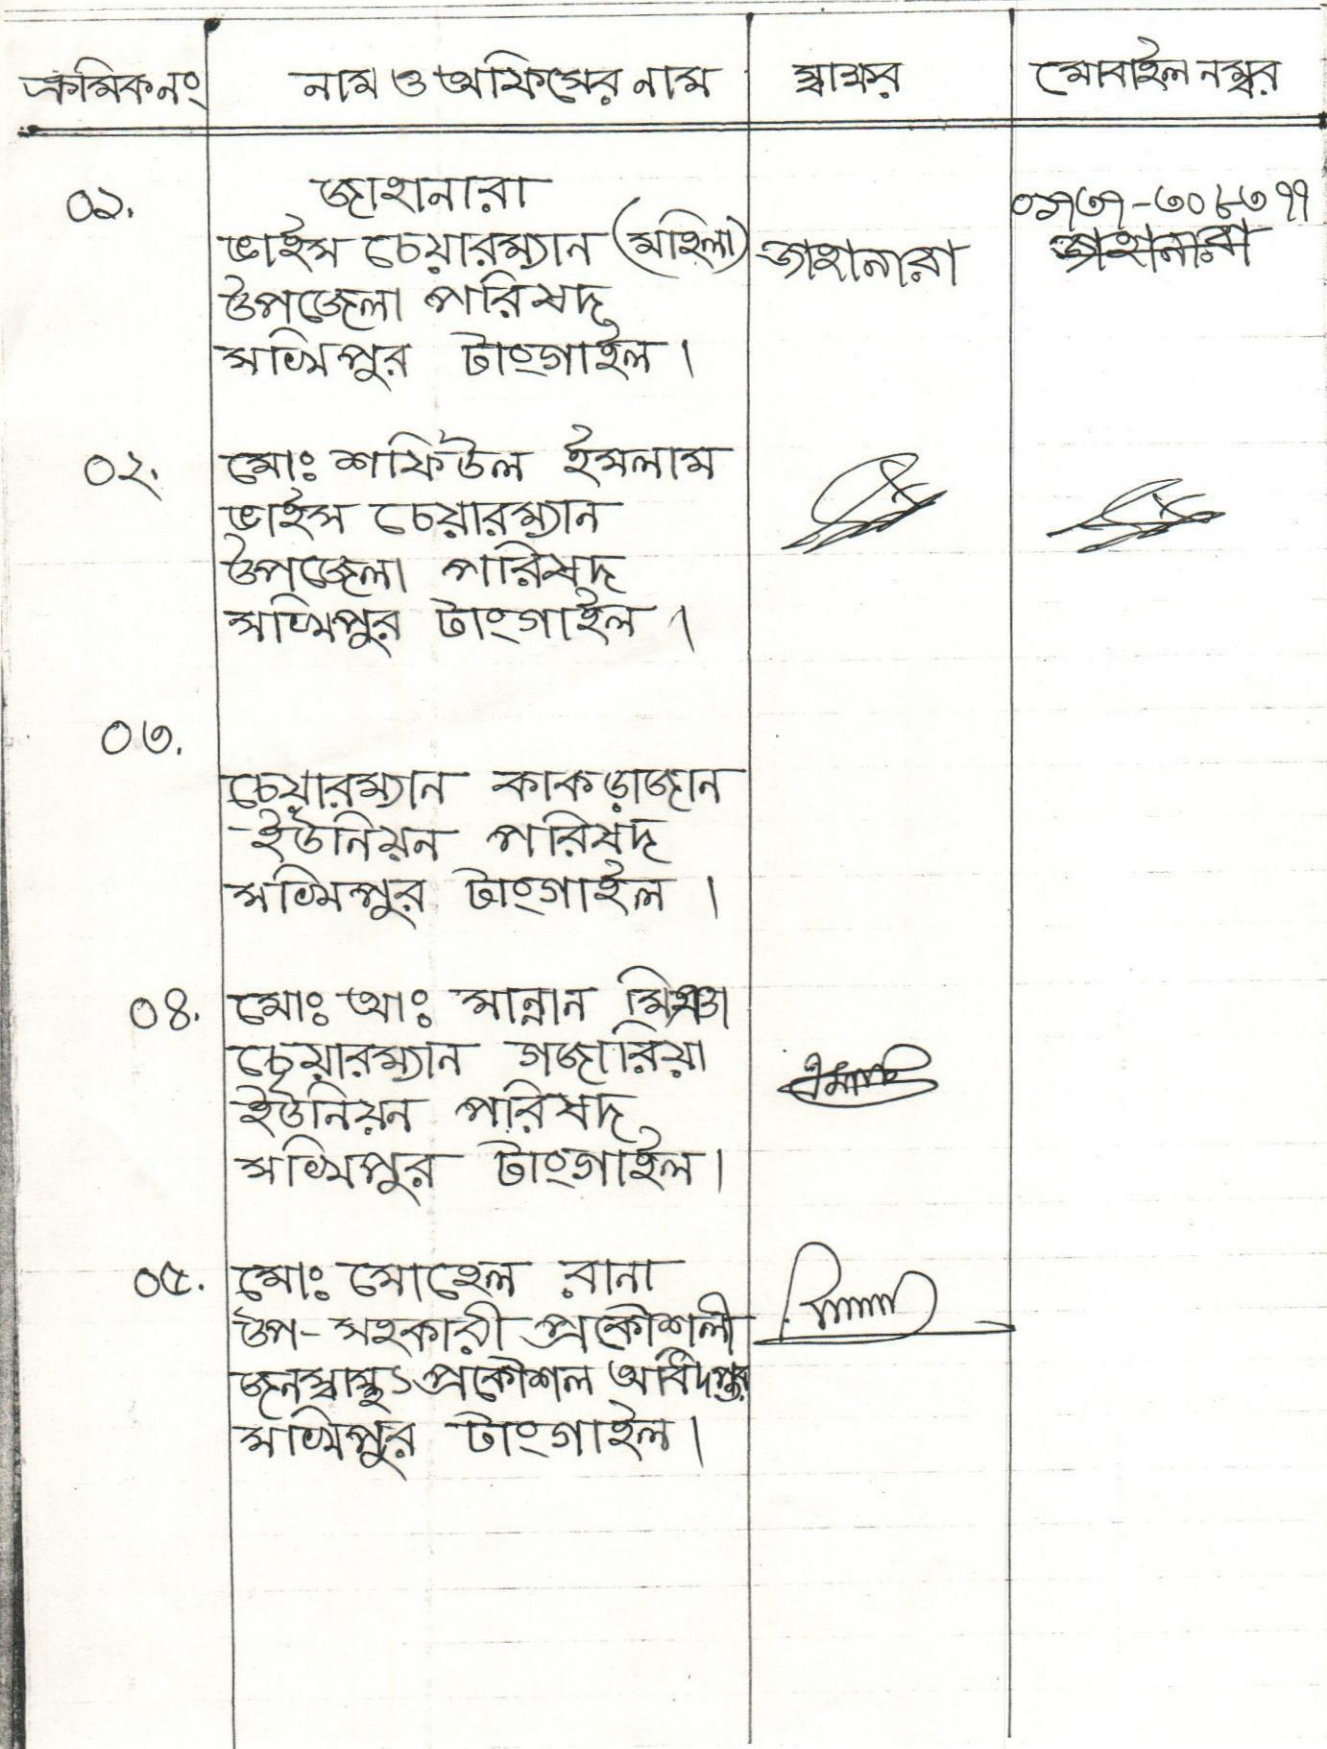 ক্রমিক নং নাম ও অফিসের নাম স্বাক্ষর মোবাইল নম্বর
০১. জাহানারা
ভাইস চেয়ারম্যান (মহিলা) জাহানারা জাহানারা
উপজেলা পরিষদ
সখিপুর টাংগাইল।
০২. মোঃ শফিউল ইসলাম
ভাইস চেয়ারম্যান
উপজেলা পরিষদ
সখিপুর টাংগাইল।
০৩.
চেয়ারম্যান কাকড়াজান
ইউনিয়ন পরিষদ
সখিপুর টাংগাইল।
০৪. মোঃ আঃ মান্নান মিঞা
চেয়ারম্যান গজারিয়া
ইউনিয়ন পরিষদ
সখিপুর টাংগাইল।
০৫. মোঃ সোহেল রানা
উপ-সহকারী প্রকৌশলী
জনস্বাস্থ্য প্রকৌশল অধিদপ্তর
সখিপুর টাংগাইল।